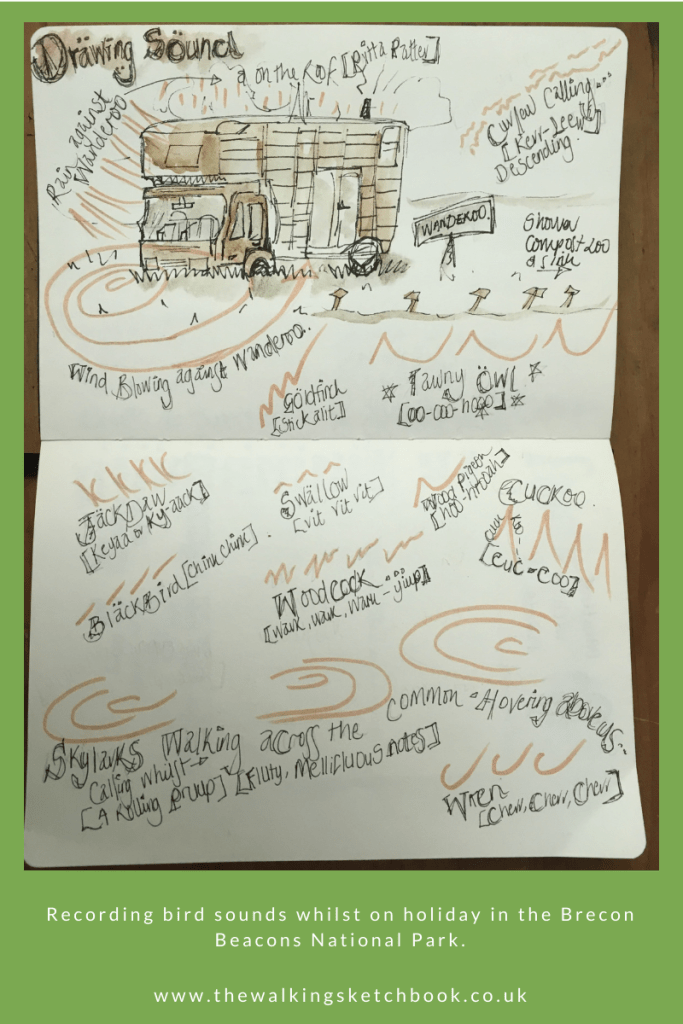 Dräwing Söund
on the Roof [Pitta Patter]
Rain against
Wanderoo
Curlew Calling...
[Kerr-Leew]
Descending.
WANDEROO
Shower
Compost Loo
Wind Blowing against Wanderoo.
Göldfinch
[Stickalit]
* Tawny Öwl *
[oo-ooo-hooo] *
JäckDaw
[Keyaa or Ky-aack]
Swällow
[vit vit vit]
Wood Pigeon
Cuckoo.
[Cuc-coo]
BläckBird [Chink Chink].
Woodcock
[Wark, Wark, Wark-yiup]
Skylarks Walking across the common Hovering above us..
Calling whilst
[A Rolling Pruup] [Fluty, Mellifluous notes]
Wren
[Cherr, Cherr, Cherr]
Recording bird sounds whilst on holiday in the Brecon
Beacons National Park.
www.thewalkingsketchbook.co.uk